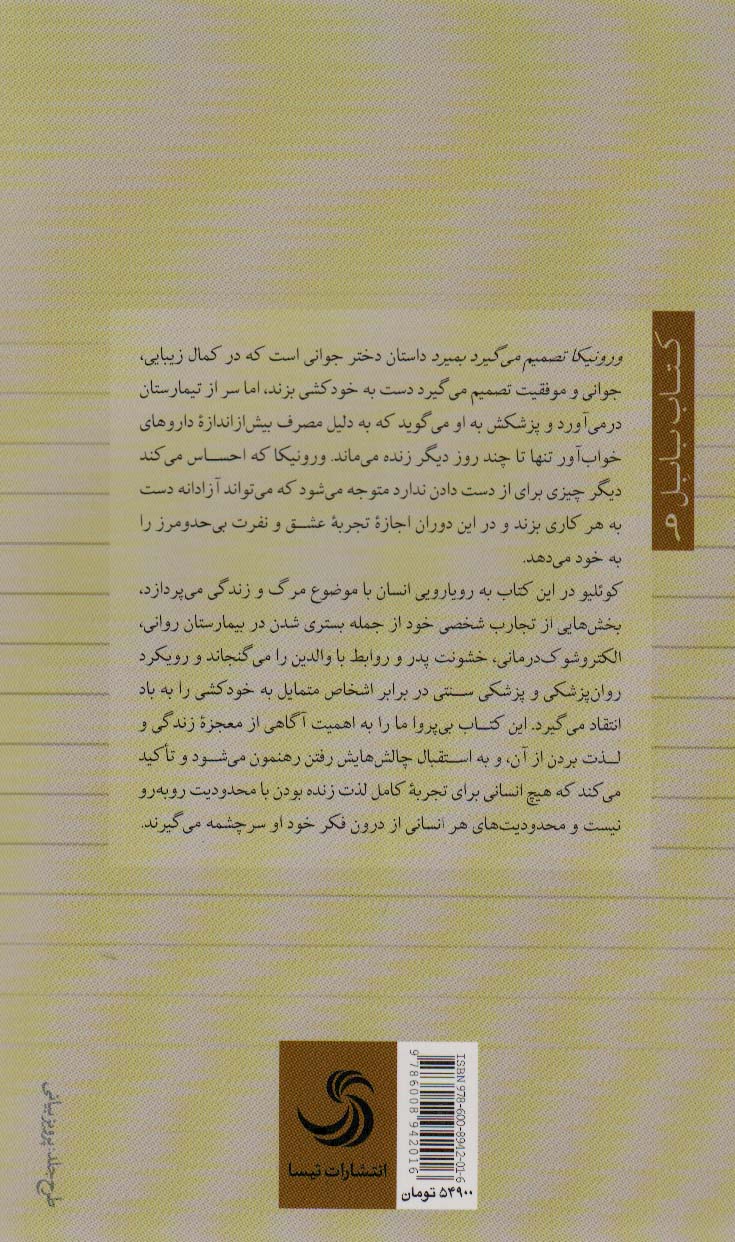 کتاب بابل ۹
ورونیکا تصمیم می‌گیرد بمیرد داستان دختر جوانی است که در کمال زیبایی،
جوانی و موفقیت تصمیم می‌گیرد دست به خودکشی بزند، اما سر از تیمارستان
درمی‌آورد و پزشکش به او می‌گوید که به دلیل مصرف بیش‌ازاندازهٔ داروهای
خواب‌آور تنها تا چند روز دیگر زنده می‌ماند. ورونیکا که احساس می‌کند
دیگر چیزی برای از دست دادن ندارد متوجه می‌شود که می‌تواند آزادانه دست
به هر کاری بزند و در این دوران اجازهٔ تجربهٔ عشق و نفرت بی‌حدومرز را
به خود می‌دهد.
کوئلیو در این کتاب به رویارویی انسان با موضوع مرگ و زندگی می‌پردازد،
بخش‌هایی از تجارب شخصی خود از جمله بستری شدن در بیمارستان روانی،
الکتروشوک‌درمانی، خشونت پدر و روابط با والدین را می‌گنجاند و رویکرد
روان‌پزشکی و پزشکی سنتی در برابر اشخاص متمایل به خودکشی را به باد
انتقاد می‌گیرد. این کتاب بی‌پروا ما را به اهمیت آگاهی از معجزهٔ زندگی و
لذت بردن از آن، و به استقبال چالش‌هایش رفتن رهنمون می‌شود و تأکید
می‌کند که هیچ انسانی برای تجربهٔ کامل لذت زنده بودن با محدودیت روبه‌رو
نیست و محدودیت‌های هر انسانی از درون فکر خود او سرچشمه می‌گیرند.
انتشارات تیسا
ISBN 978-600-8942-01-6
9 786008 942016
۵۴۹۰۰ تومان
طرح جلد: پرویز بیانی